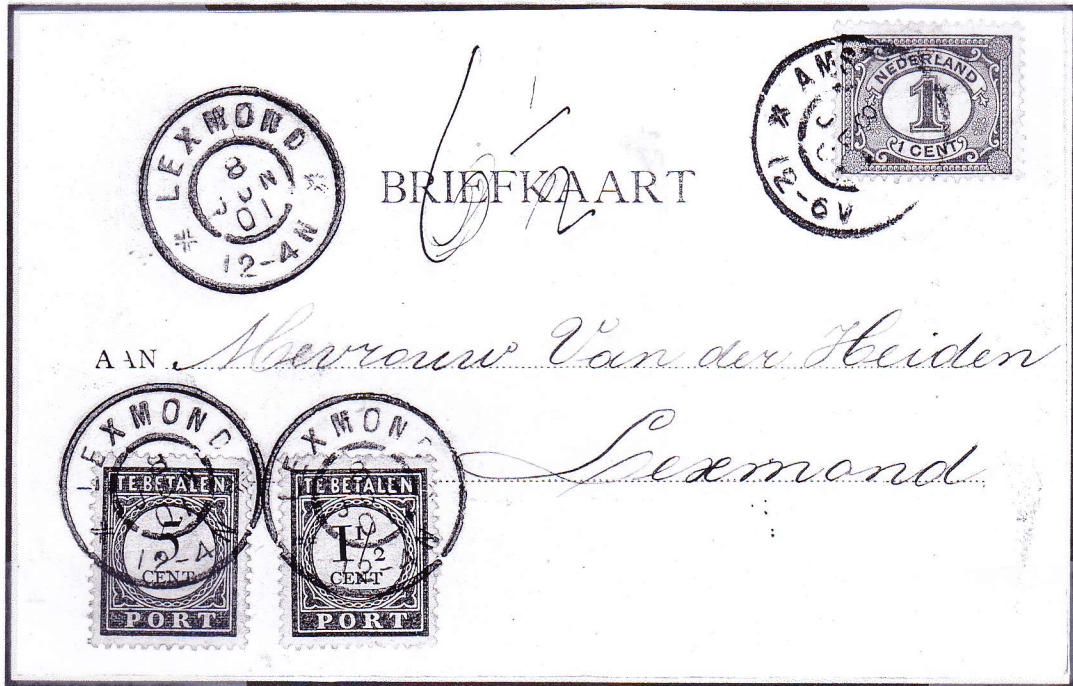 LEXMOND
8 JUN
01
12-4N
6 1/2
AMS
12-6V
NEDERLAND
1
1 CENT
BRIEFKAART
AAN Mevrouw Van der Heiden
Lexmond
LEXMOND
8
01
12-4N
TE BETALEN
5
CENT
PORT
LEXMOND
TE BETALEN
1 1/2
CENT
PORT